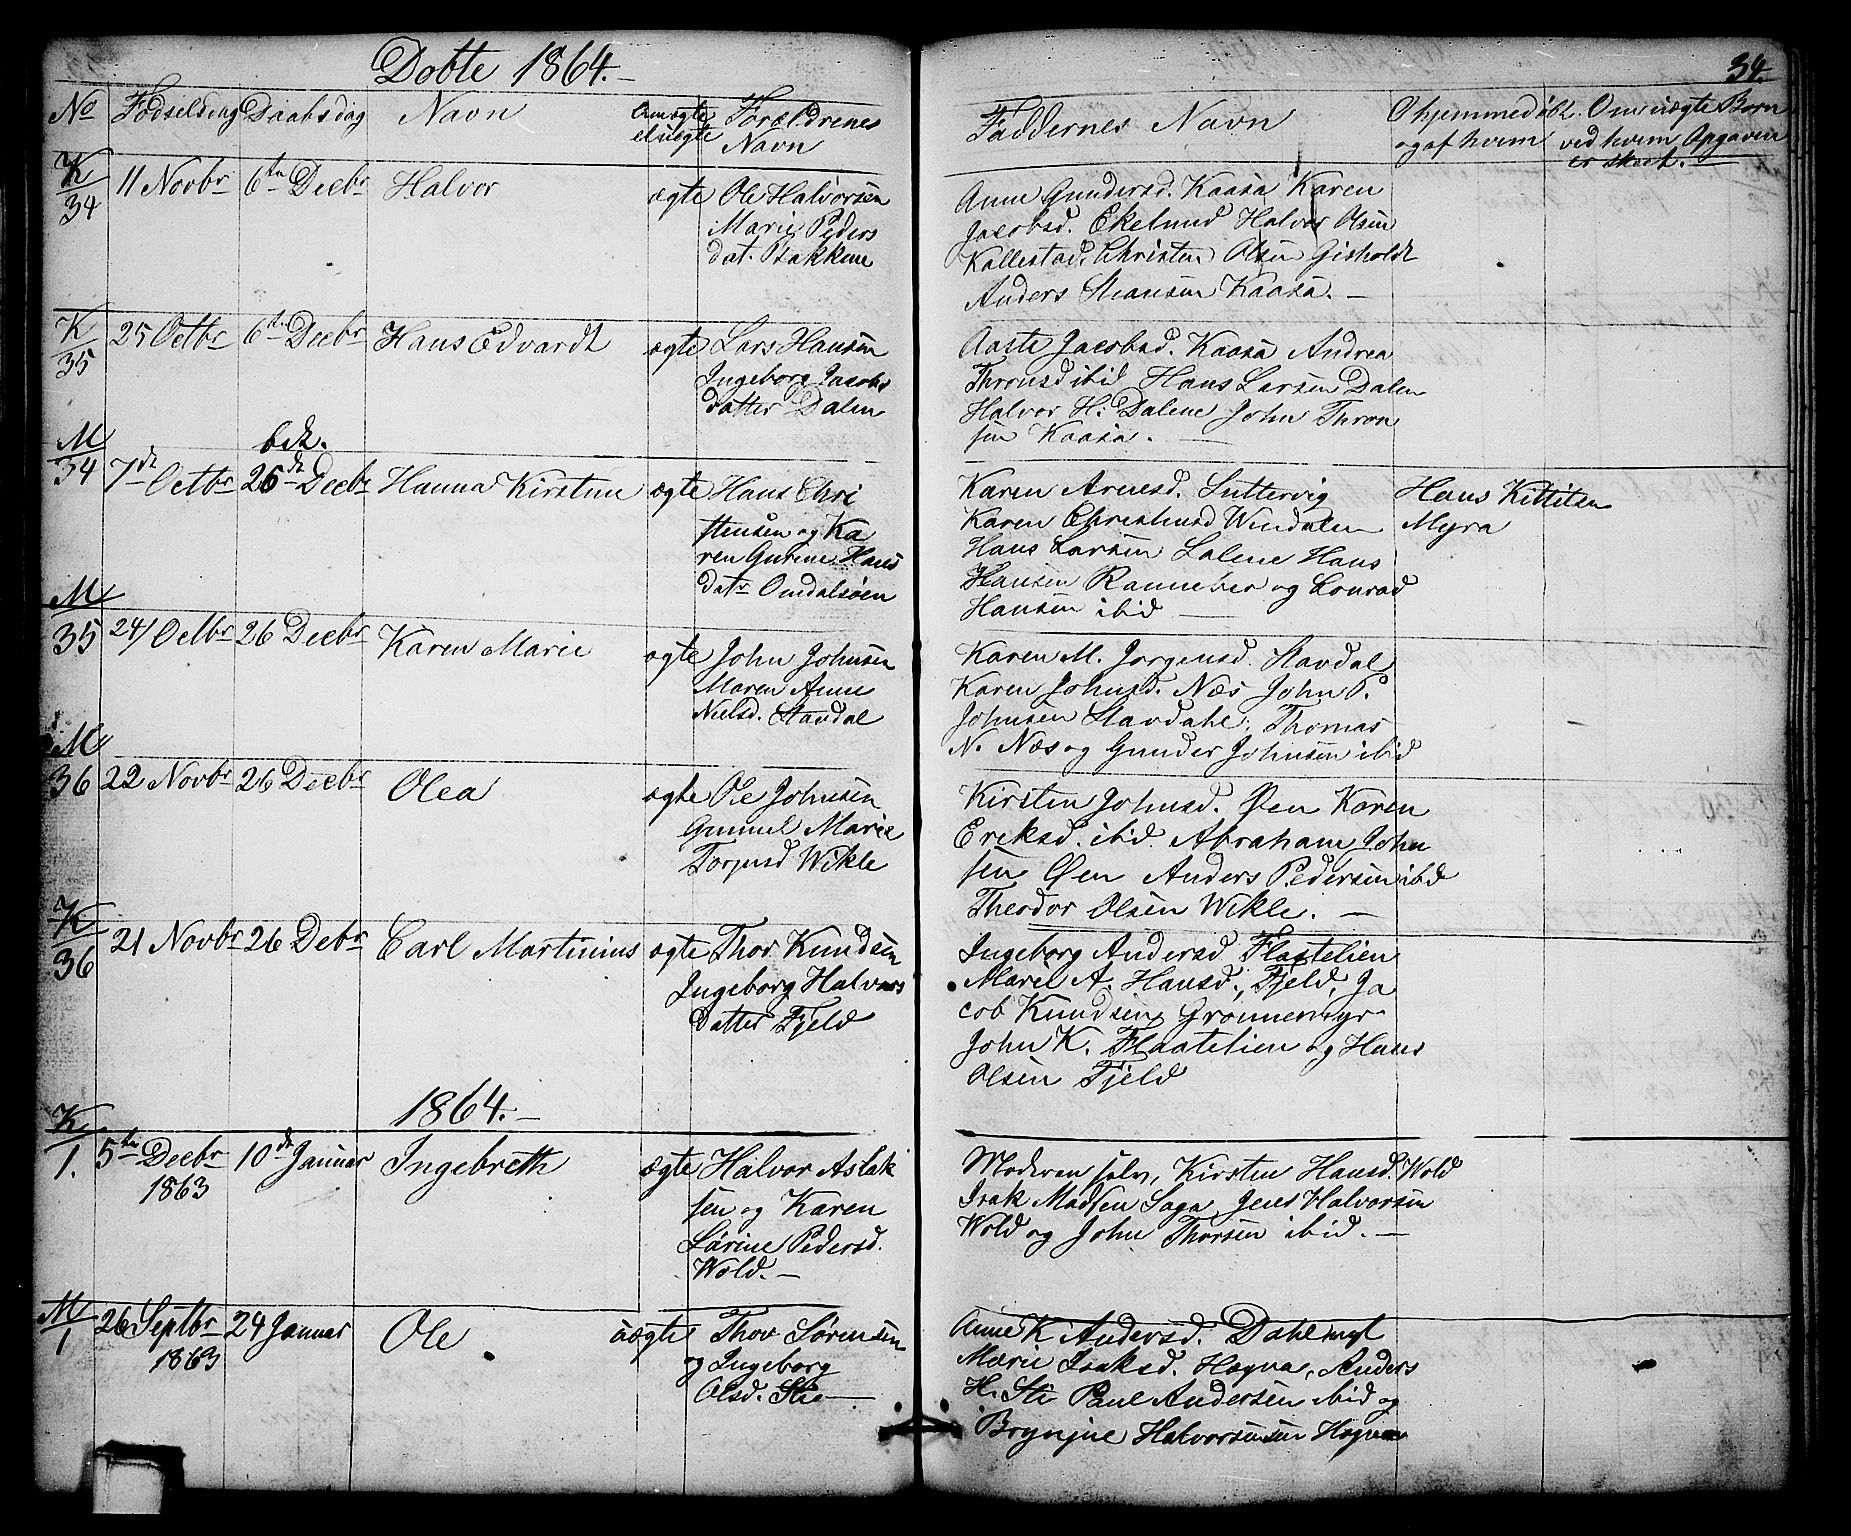 Døbte 1864.-
34.
No Fødselsdag Daabsdag Navn Om ægte el uægte Forældrenes Navn
Faddernes Navn
O hjemmedøbt. og af hvem
Om uægte Børn ved hvem Opgaven er skeet.
K 34 11 Novbr 6te Decbr Halvor ægte Ole Halvorsen
Marie Peders
dat. Bakkene
Anne Gundersd. Kaasa Karen
Jacobsd. Ekelund Halvor Olsen
Kallestad. Christen Olsen Gisholdt
Anders Hansen Kaasa. -
K 35 25 Octbr 6te Decbr Hans Edvardt ægte Lars Hansen
Ingeborg Jacobs
datter Dalen
Aaste Jacobsd. Kaasa Andrea
Thronsd ibid Hans Larsen Dalen
Halvor H: Dalene John Thron
sen Kaasa. -
M 34 7de Octbr bek. 26de Decbr Hanna Kirstine ægte Hans Chri
stensen og Ka
ren Gurine Hans
datr Omdalsøen
Karen Arnesd. Luttervig
Karen Christensd Wendalen
Hans Larsen Lalene Hans
Hansen Ranneber og Conrad
Hansen ibid -
Hans Kittilsen
Myra
M 35 24 Octbr 26 Decbr Karen Marie ægte John Johnsen
Maren Anne
Nielsd. Stavdal
Karen M. Jørgensd. Stavdal
Karen Johnsd. Næs John P.
Johnsen Stavdahl. Thomas
N. Næs og Gunder Johnsen ibid
M 36 22 Novbr 26 Decbr Olea ægte Ole Johnsen
Gunnel Marie
Torjusd Wikle
Kirsten Johnsd. Øen Karen
Ereksd. ibid. Abraham John
sen Øen Anders Pedersen ibd
Theodor Olsen Wikle. -
K 36 21 Novbr 26 Debr Carl Martinius ægte Thor Knudsen
Ingeborg Halvors
datter Fjeld
Ingeborg Andersd Flaatelien
Marie A. Hansd., Fjeld, Ja
cob Knudsen Grønnemyr
John K. Flaatelien og Hans
Olsen Fjeld
1864.-
K 1. 5te Decbr 1863 10de Januar Ingebreth ægte Halvor Aslak
sen og Karen
Sørine Pedersd.
Wold. -
Moderen selv, Kirsten Hansd. Wold
Isak Madsen Saga, Jens Halvorsen
Wold og John Thorsen ibid. -
M 1 26 Septbr 1863 24 Januar Ole uægte Thov Sørensen
og Ingeborg
Olsd. Stie
Anne K Andersd. Dahlmyt
Marie Isaksd. Høgna, Anders
H. Sti Paul Andersen ibid og
Brynjne Halvorsensen Høgna